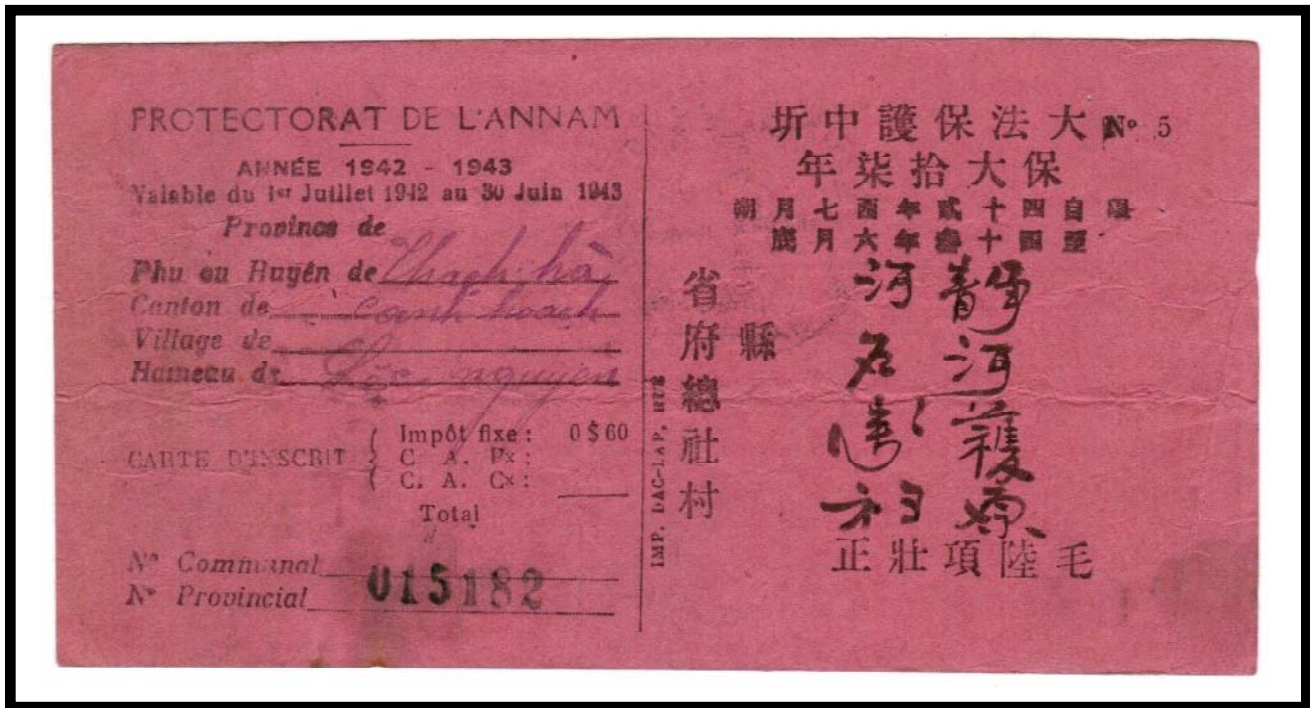 PROTECTORAT DE L'ANNAM
ANNÉE 1942 - 1943
Valable du 1er Juillet 1942 au 30 Juin 1943
Province de
Phu ou Huyên de Thạch hà
Canton de Canh hoach
Village de
Hameau de Lộc nguyên
CARTE D'INSCRIT
Impôt fixe : 0$60
C. A. Px :
C. A. Cx :
Total
No Communal
No Provincial 015182
IMP. DAC-LAP, HUE
No 5
大法保護中圻
保大拾柒年
限自四十貳年西七月朔
至四十叁年六月底
縣
省府總社村
毛陸項壯正